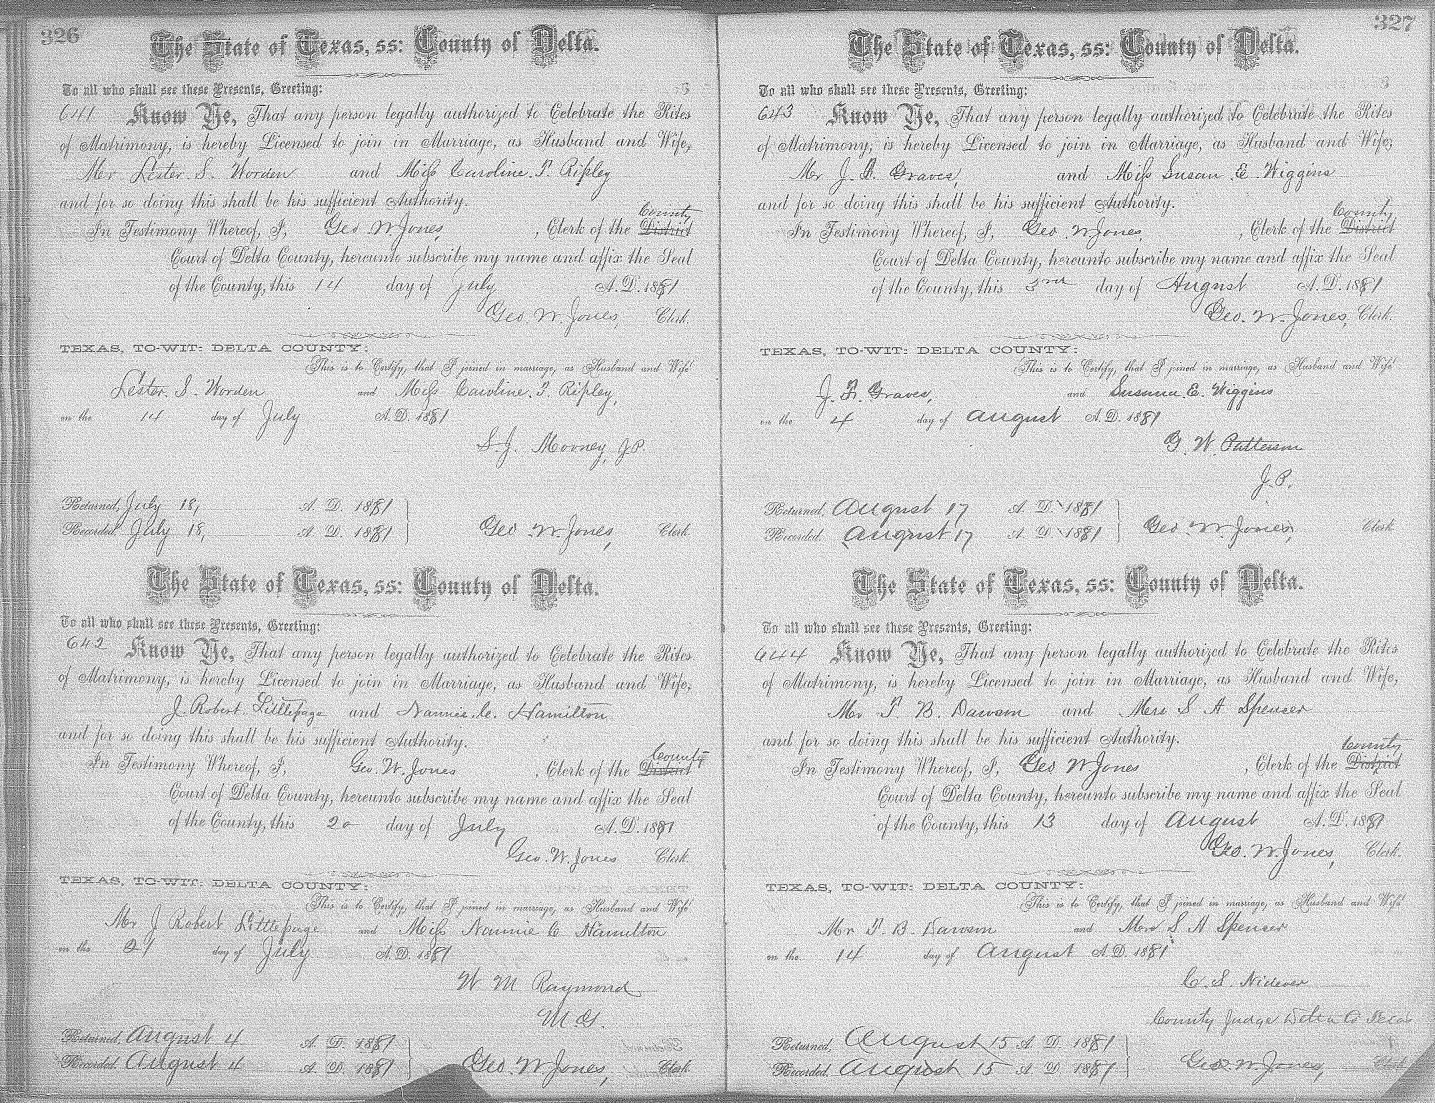 326
The State of Texas, ss: County of Delta.
To all who shall see these Presents, Greeting:
641 Know Ye, That any person legally authorized to Celebrate the Rites
of Matrimony, is hereby Licensed to join in Marriage, as Husband and Wife,
Mr Lester. S. Worden and Miss Caroline. T. Ripley
and for so doing this shall be his sufficient Authority.
County
In Testimony Whereof, I, Geo W Jones, , Clerk of the District
Court of Delta County, hereunto subscribe my name and affix the Seal
of the County, this 14 day of July A. D. 1881
Geo. W. Jones, Clerk.
TEXAS, TO-WIT: DELTA COUNTY:
This is to Certify, that I joined in marriage, as Husband and Wife
Lester. S. Worden and Miss Caroline. T. Ripley,
on the 14 day of July A. D. 1881
S. J. Mooney, J P.
Returned, July 18, A. D. 1881
Recorded. July 18, A. D. 1881 Geo W Jones, Clerk
The State of Texas, ss: County of Delta.
To all who shall see these Presents, Greeting:
642 Know Ye, That any person legally authorized to Celebrate the Rites
of Matrimony, is hereby Licensed to join in Marriage, as Husband and Wife,
J Robert Littlepage and Nannie. C. Hamilton
and for so doing this shall be his sufficient Authority.
County
In Testimony Whereof, I, Geo. W. Jones , Clerk of the District
Court of Delta County, hereunto subscribe my name and affix the Seal
of the County, this 20 day of July A. D. 1881
Geo. W. Jones Clerk.
TEXAS, TO-WIT: DELTA COUNTY:
This is to Certify, that I joined in marriage, as Husband and Wife
Mr J Robert Littlepage and Miss Nannie C Hamilton
on the 21 day of July A. D. 1881
W M Raymond
M. G.
Returned, August 4 A. D. 1881
Recorded. August 4 A. D. 1881 Geo W Jones, Clerk
327
The State of Texas, ss: County of Delta.
To all who shall see these Presents, Greeting:
643 Know Ye, That any person legally authorized to Celebrate the Rites
of Matrimony, is hereby Licensed to join in Marriage, as Husband and Wife,
Mr J. F. Graves, and Miss Susan. E. Wiggins
and for so doing this shall be his sufficient Authority.
County
In Testimony Whereof, I, Geo. W Jones, , Clerk of the District
Court of Delta County, hereunto subscribe my name and affix the Seal
of the County, this 3rd day of August A. D. 1881
Geo. W. Jones, Clerk.
TEXAS, TO-WIT: DELTA COUNTY:
This is to Certify, that I joined in marriage, as Husband and Wife
J. F. Graves, and Susana. E. Wiggins
on the 4 day of August A. D. 1881
G. W. Patterson
J. P.
Returned, August 17 A. D. 1881
Recorded. August 17 A. D. 1881 Geo W. Jones, Clerk
The State of Texas, ss: County of Delta.
To all who shall see these Presents, Greeting:
644 Know Ye, That any person legally authorized to Celebrate the Rites
of Matrimony, is hereby Licensed to join in Marriage, as Husband and Wife,
Mr T. B. Dawson and Mrs S A Spenser
and for so doing this shall be his sufficient Authority.
County
In Testimony Whereof, I, Geo W Jones , Clerk of the District
Court of Delta County, hereunto subscribe my name and affix the Seal
of the County, this 13 day of August A. D. 1881
Geo. W. Jones, Clerk.
TEXAS, TO-WIT: DELTA COUNTY:
This is to Certify, that I joined in marriage, as Husband and Wife
Mr T. B. Dawson and Mrs S A Spenser
on the 14 day of August A. D. 1881
C. S. Nidever
County Judge Delta Co Texas
Returned, August 15 A. D. 1881
Recorded. August 15 A. D. 1881 Geo. W. Jones, Clerk